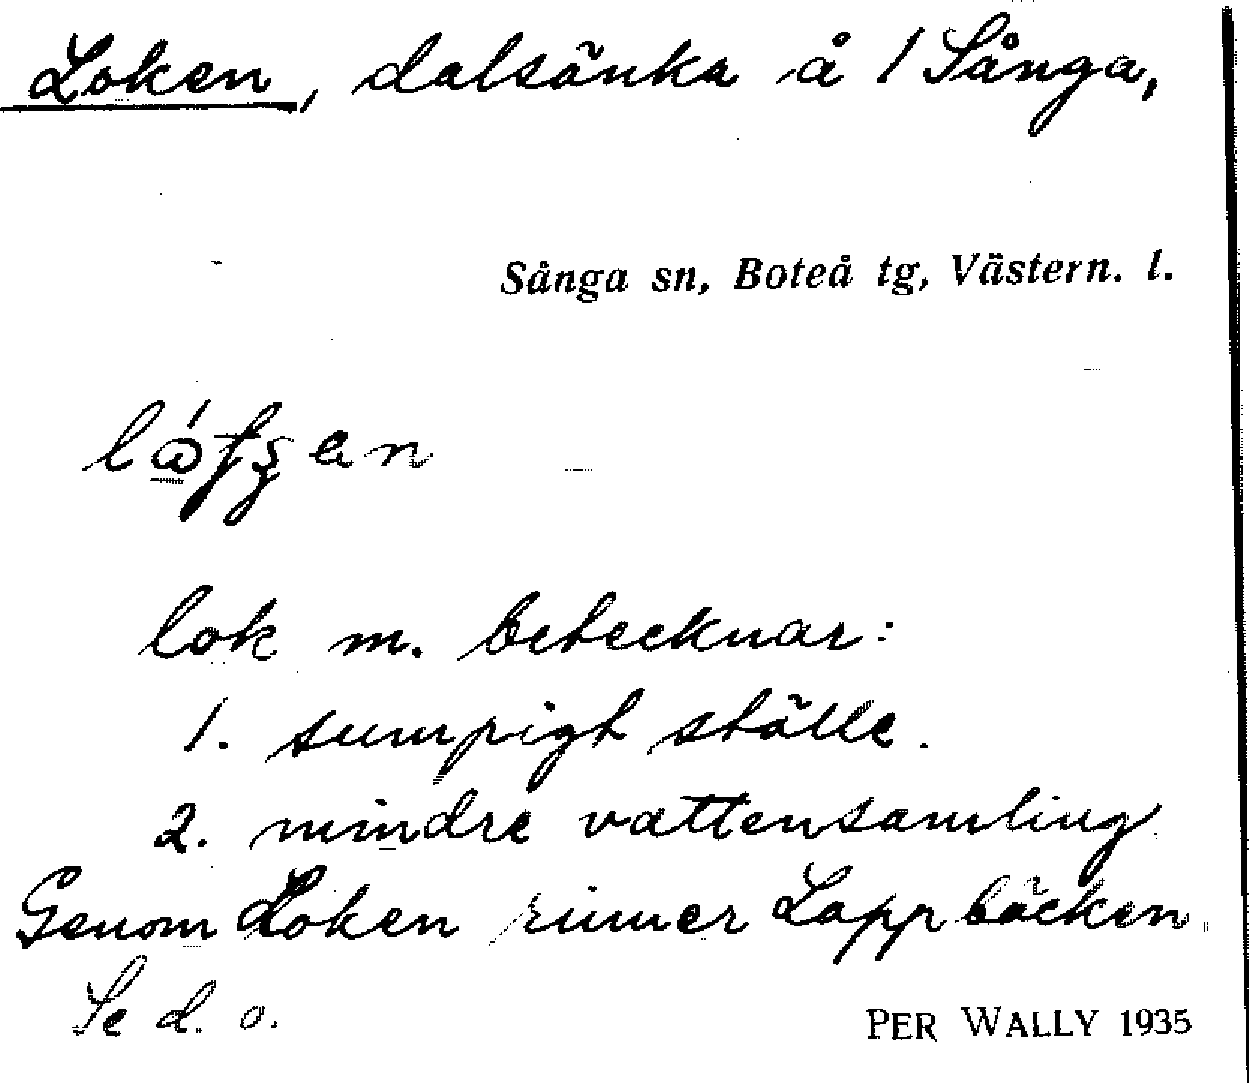 Loken, dalsänka å 1 Sånga,
Sånga sn, Boteå tg, Västern. l.
lok m. betecknar:
1. sumpigt ställe.
2. mindre vattensamling
Genom Loken rinner Lappbäcken
Se d. o.
PER WALLY 1935